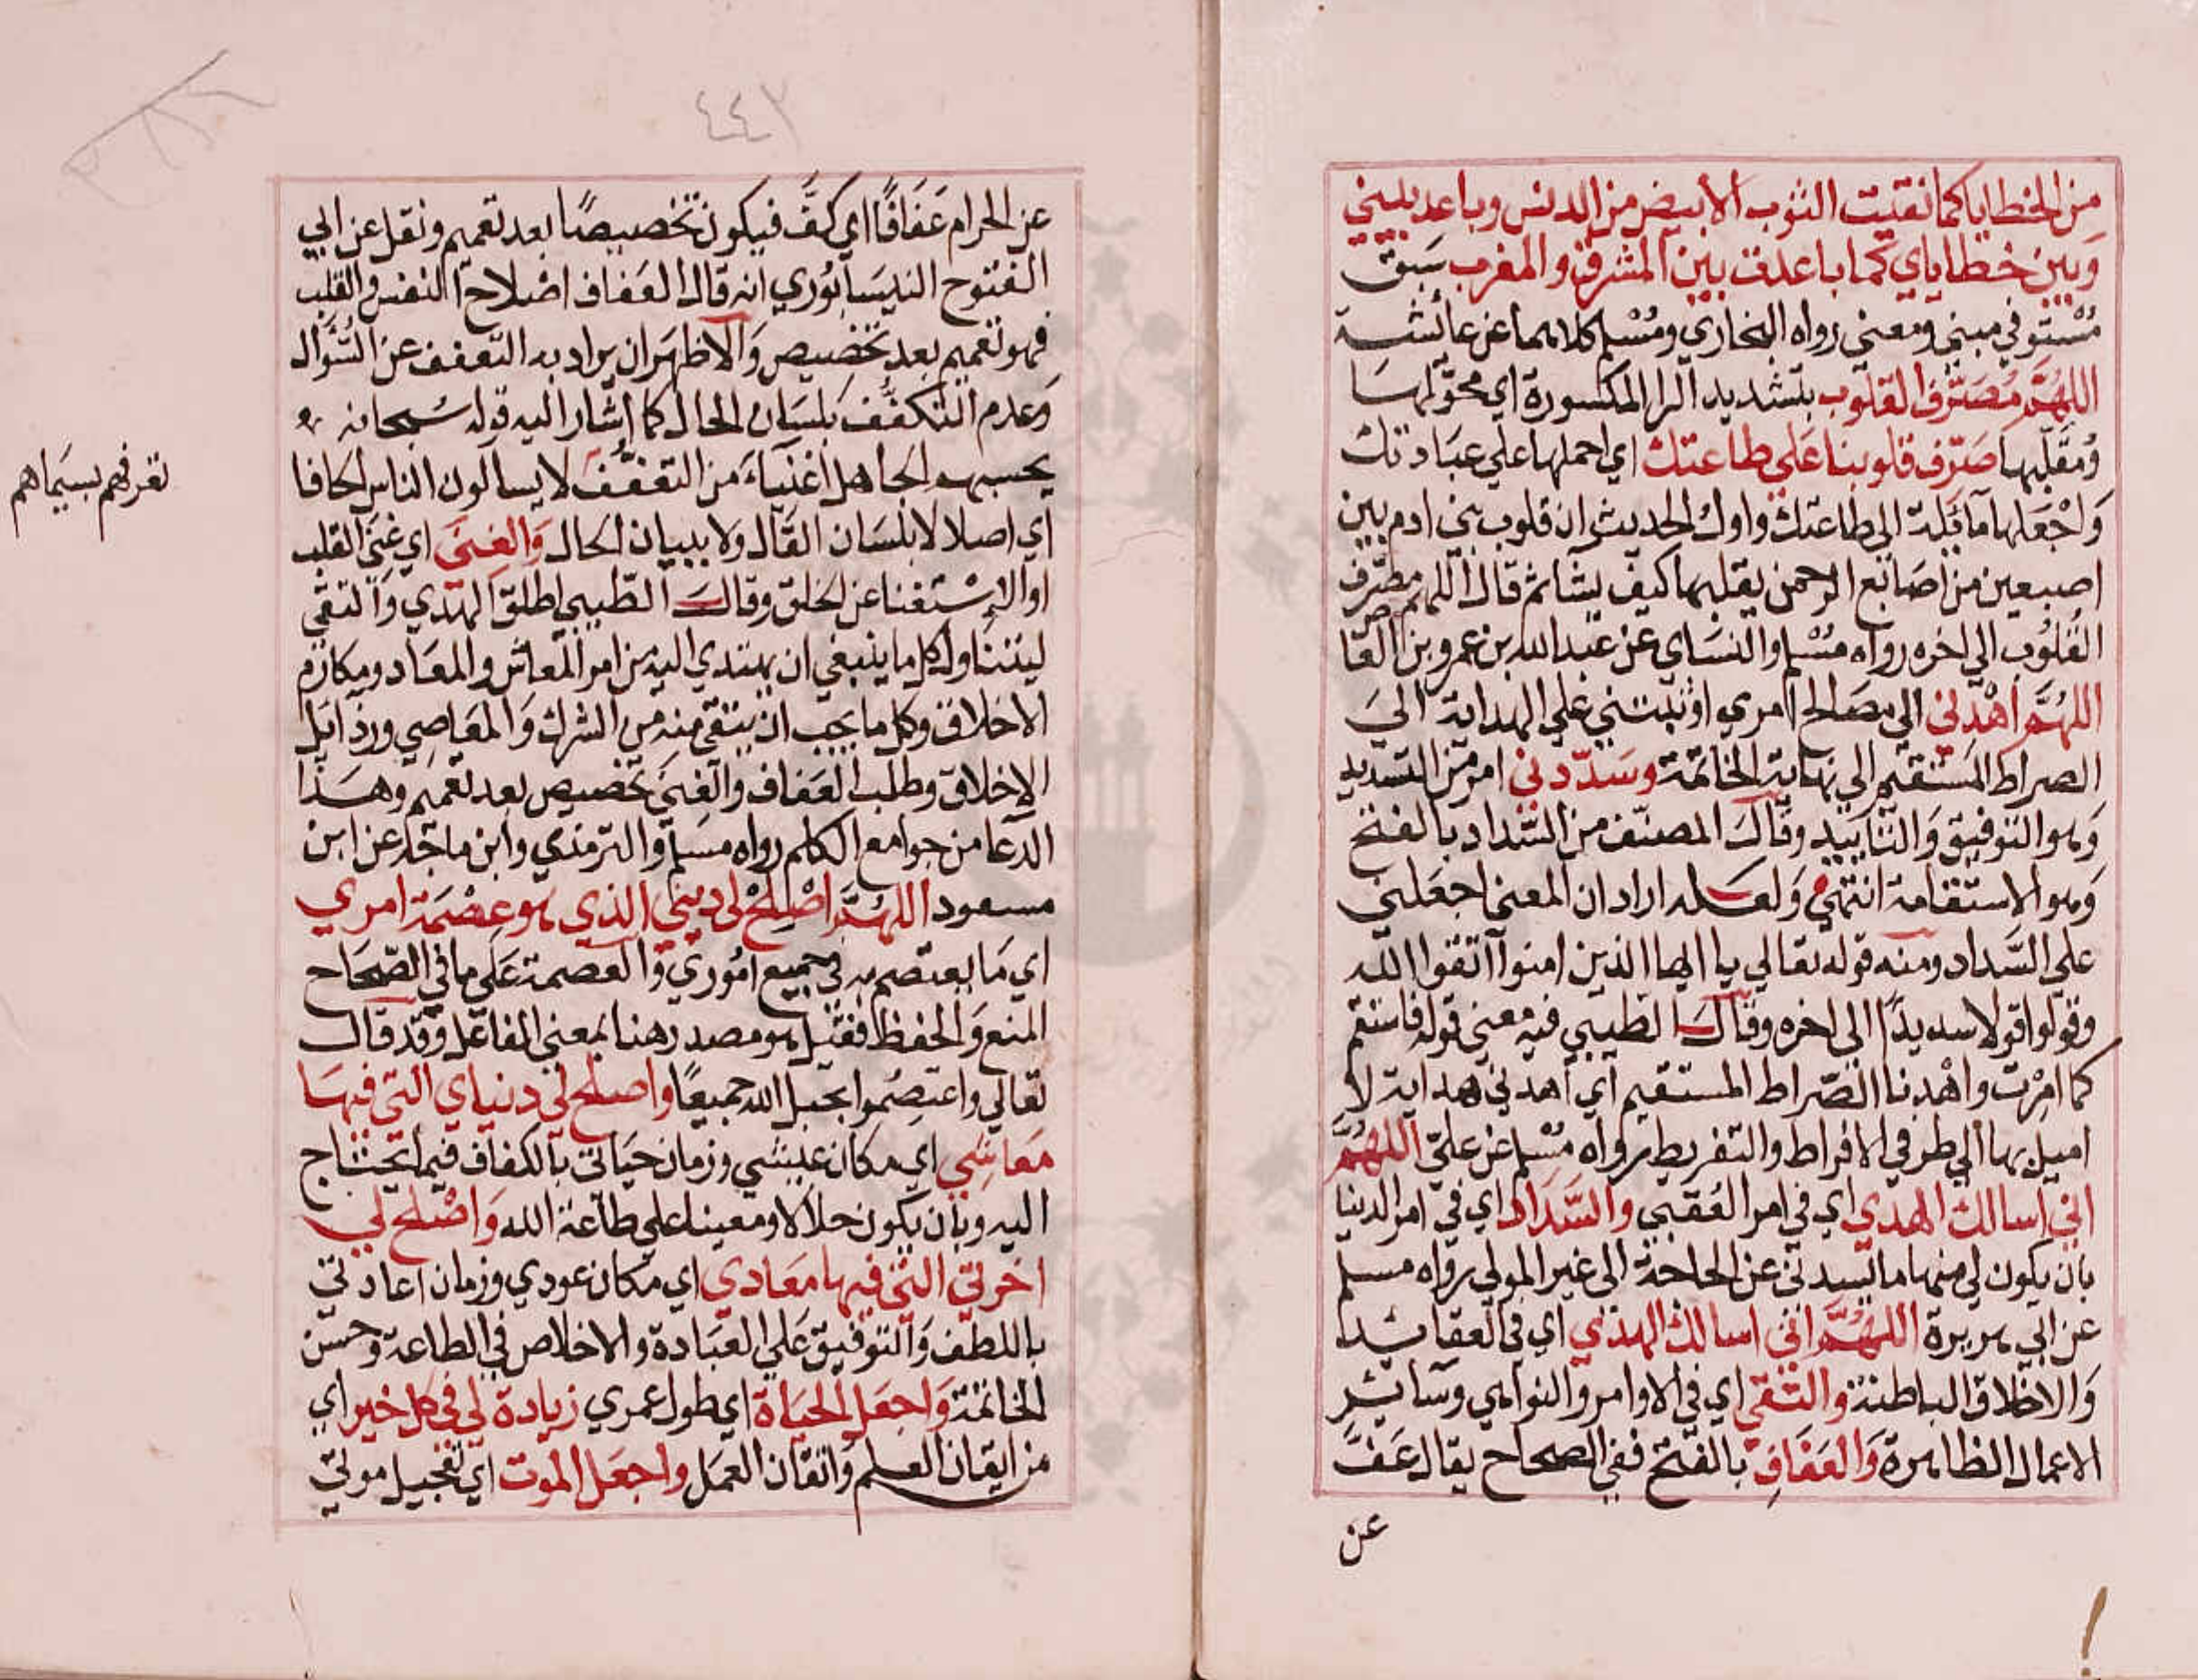 من الخطايا كما نقيت الثوب الأبيض من الدنس وباعد بيني
وبين خطاياي كما باعدت بين المشرق والمغرب سبق
مُسْتوفي مبني ومعني رواه البخاري ومُسْلم كلاهما عن عائشة
اللهُمَّ مُصَرِّفَ القلوب بتشديد الرا المكسورة اي محوّلها
ومُقَلّبها صَرِّف قلوبنا عَلي طاعتك اي احملها علي عبادتك
وَاجْعَلها مآئلة الي طاعتك واول الحديث ان قلوب بني ادم بين
اصبعين من اصَابع الرحمن يقلبها كيف يشا ثم قال اللهم مصَرّف
القُلوُب الي اخره رواه مُسْلم والنسَاي عن عَبد الله بن عمرو بن العَا
اللهُمَّ اهْدني الي مصَالح امري او ثبتني علي الهداية الي
الصراط المسْتقيم الي نهاية الخاتمة وسَدّدني امر من التسديد
وَهو التوفيق وَالتاييد وقالَ المصنّف من السّداد بالفتح
وَهو الاستقامة انتهي وَلعَله اراد ان المعني اجعَلني
علي السَّداد ومنه قوله تعالي يا ايها الذين امنوا اتقوا الله
وقولوا قولا سديدًا الي اخره وقالَ الطيبي فيه معني قوله فاستقم
كما امِرْت واهْدِنا الصّراط المستقيم اي اهدني هداية لا
اميل بها الي طرفي الافراط والتفريط رواه مُسْلم عن عليّ اللهُمَّ
اني اسالك الهدي اي في امر العُقبي والسَّداد اي في امر الدنيا
بان يكون لي منها ما يسدني عن الحاجة الي غير المولي رواه مسلم
عن ابي هريرة اللهُمَّ اني اسالك الهدي اي في العقائد
وَالاخلاق الباطنة والتقي اي في الاوامر والنواهي وسَائر
الاعمال الظاهرة وَالعَفَافِ بالفتح ففي الصحاح يقال عَفَّ
عن
٤٤٢
عن الحرام عَفَافًا اي كفَّ فيكون تخصيصًا بعد تعميم ونقل عن ابي
الفتوح النيسَابُوري انه قال العَفاف اصْلاح النفس والقلب
فهو تعميم بعد تخصيص وَالاظهَر ان يراد به التعفف عن السُّوال
وَعدم التكفُّف بلسَان الحال كما اشار اليه قوله سُبحانه
يحسبهم الجاهل اغنيَاءَ من التعفُّف لا يسالون الناس الحافا
تعرفهم بسيَماهم
اي اصلا لا بلسَان القَال وَلا ببيان الحال وَالغِنَى اي غنَى القلب
او الاِسْتغنا عن الخلق وقالَ الطّيبي اطلق الهدي وَالتقي
ليتناول كل ما ينبغي ان يهتدي اليه من امر المعاش والمعَاد ومكارم
الاخلاق وكل ما يجب ان يتقي منه من الشرك وَالمعَاصِي ورذايل
الاخلاق وطلب العَفاف والغِنَي تخصيص بعد تعميم وهَذا
الدّعا من جوامع الكلم رواه مسَلم وَالترمذي وابن ماجَة عن ابن
مسعود اللهُمَّ اصْلِحْ لي ديني الذي هو عِصْمَة امري
اي مَا يعتصم به في جميع امُوري وَالعصمة عَلَى ما في الصّحَاح
المنع وَالحفظ فقيل هو مصدر هنا بمعني الفاعل وَقد قال
تعَالي واعتصِمُوا بحبل الله جميعًا واصلح لي دنياي التي فيهَا
مَعَاشِي اي مكان عيشي وزمان حَيَاتي بالكفاف فيما يحتَاج
اليه وبان يكون حلالا ومعينا علي طاعَة الله وَاصْلح لي
اخرتي التي فيها مَعَادي اي مكان عودي وزمان اعادتي
باللطف وَالتوفيق عَلي العبَادة والاخلاص في الطاعة وحسن
الخاتمة وَاجعَل الحيَاة اي طول عمري زيادة لي في كل خير اي
من ايقان العلم وَاتقان العمَل واجعَل الموت اي تعجيل موتي